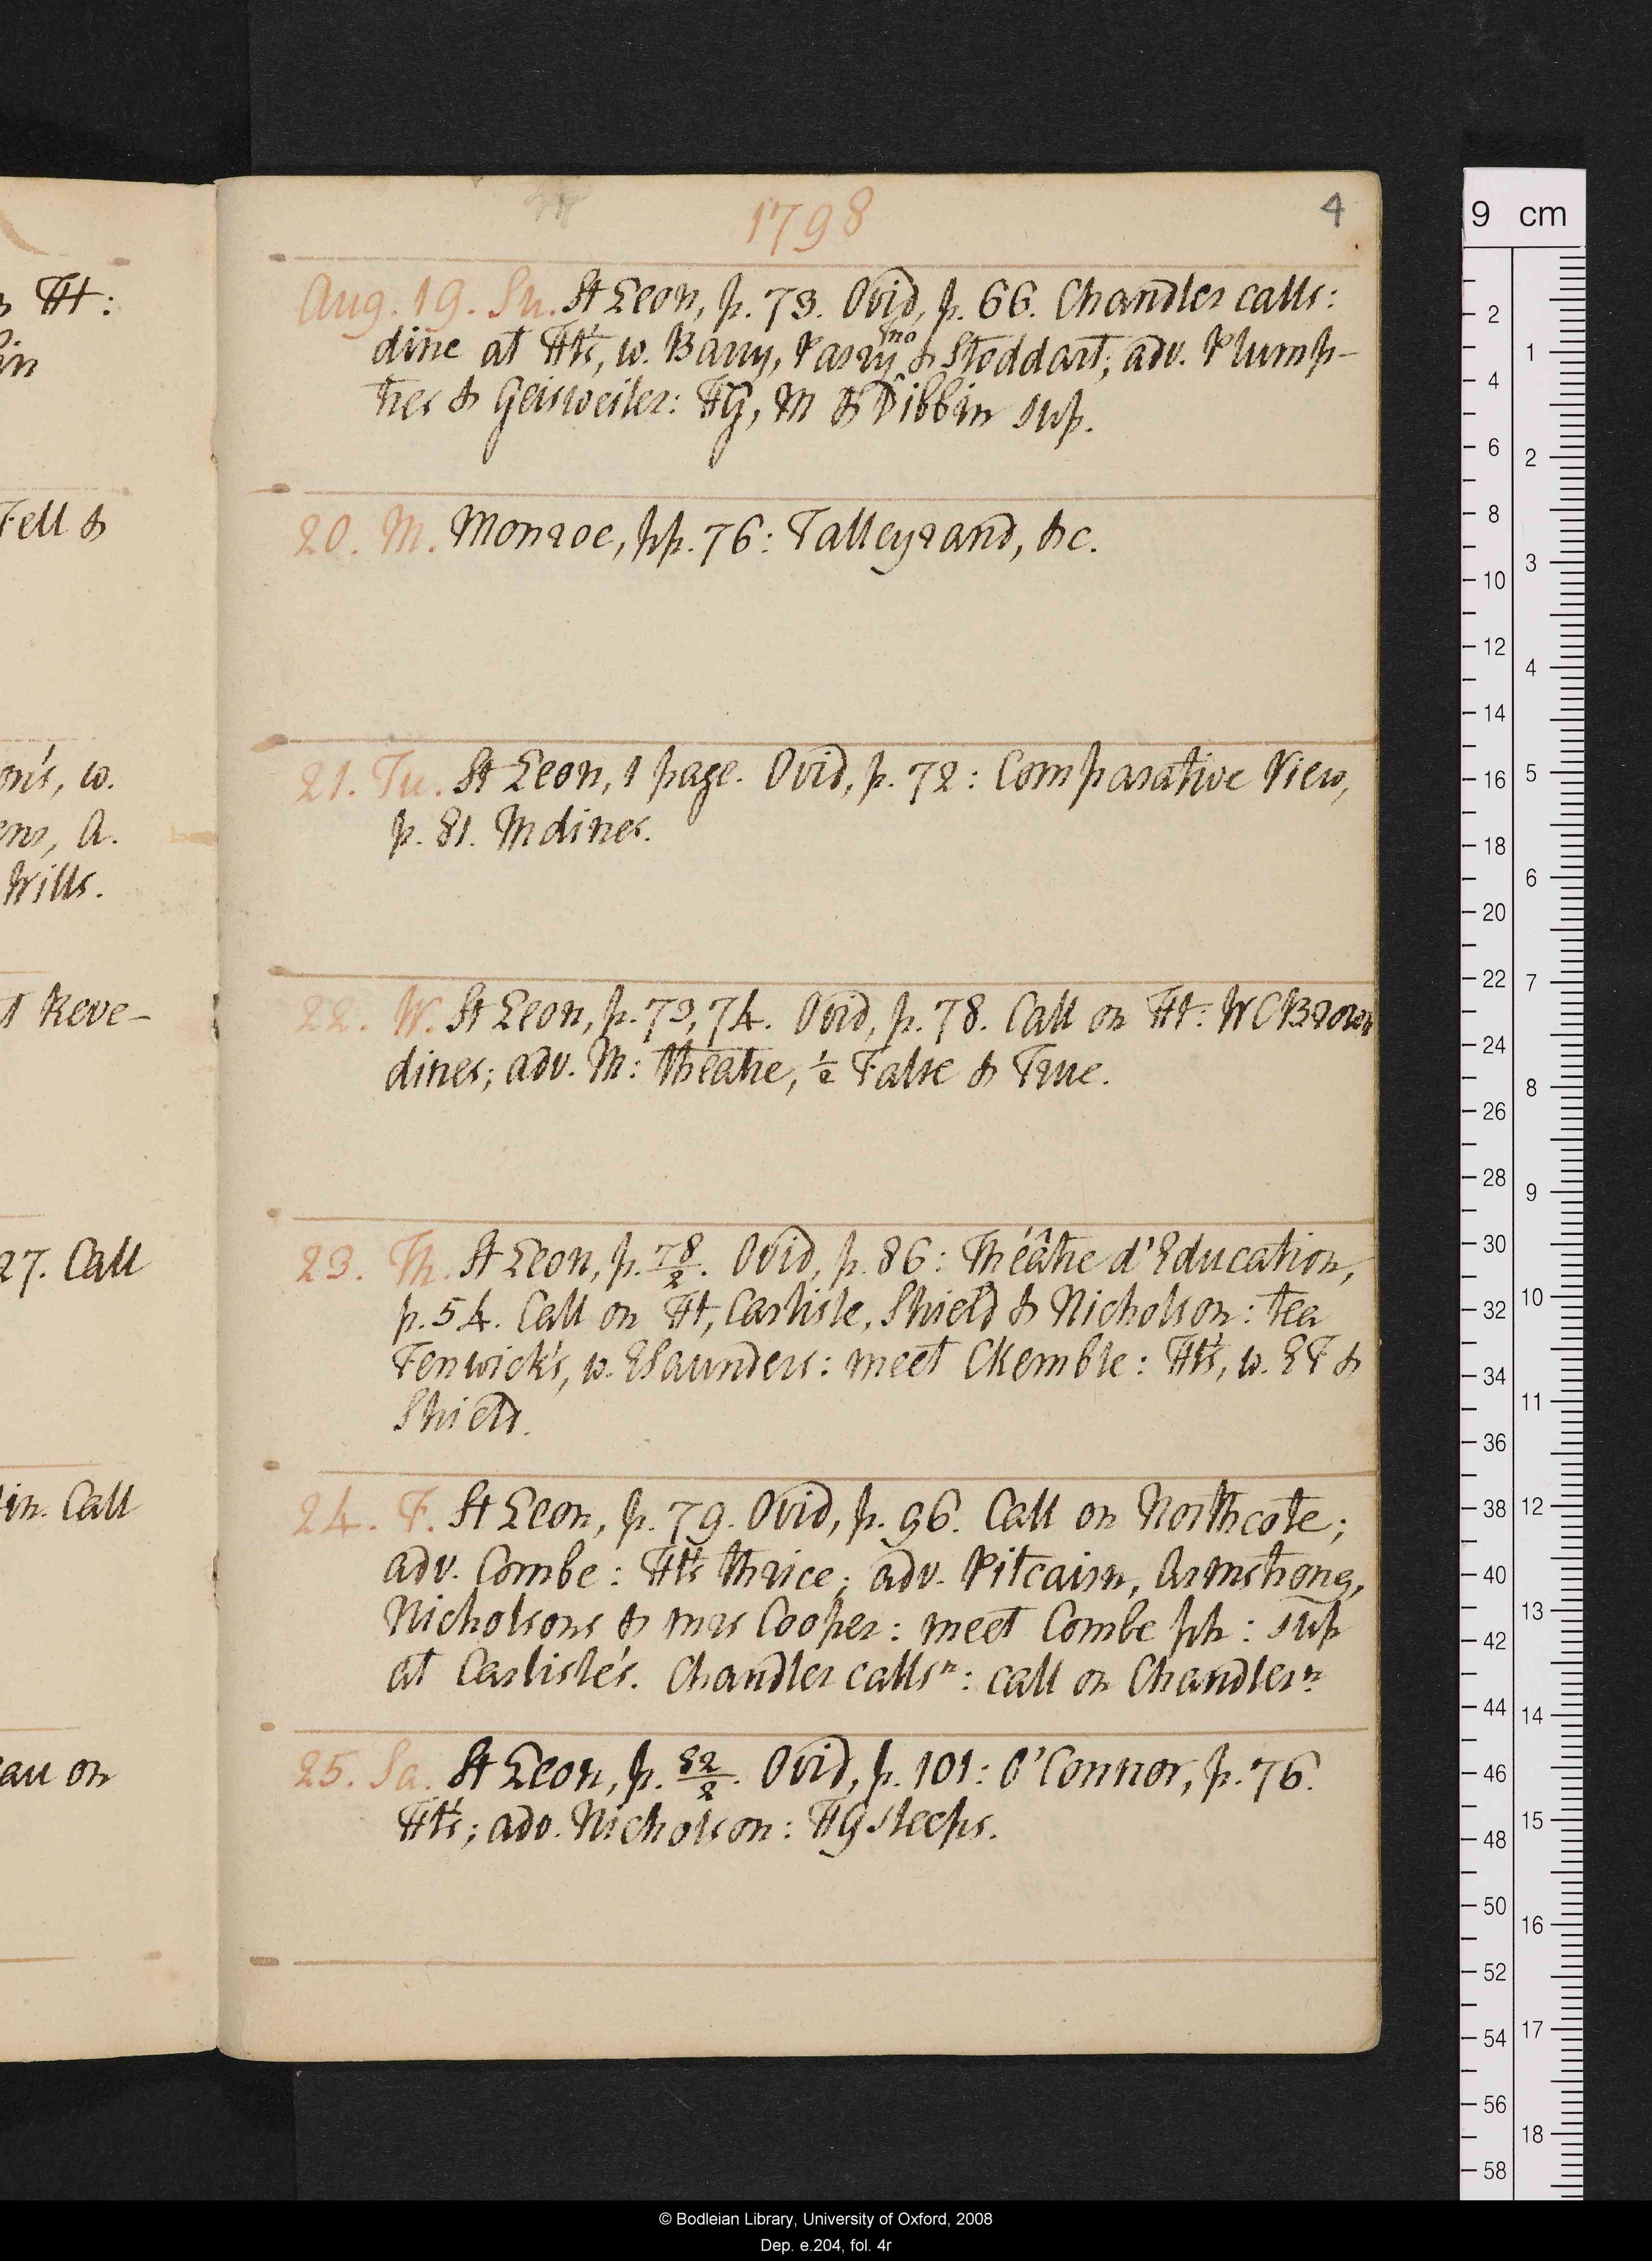 1798
4
Aug. 19. Su. St Leon, p. 73. Ovid, p. 66. Chandler calls:
dine at Ht's, w. Barry, Parry jno & Stoddart; adv. Plump-
tres & Geisweiler: HG, M & Dibbin sup.
20. M. Monroe, pp. 76: Talleyrand, &c.
21. Tu. St Leon, 1 page. Ovid, p. 72: Comparative View,
p. 81. M dines.
22. W. St Leon, p. 73, 74. Ovid, p. 78. Call on Ht: W C Brown
dines; adv. M: theatre, ½ False & True.
23. Th. St Leon, p. 78/2. Ovid, p. 86: Théâtre d'Education,
p. 54. Call on Ht, Carlisle, Shield & Nicholson: tea
Fenwick's, w. E Saunders: meet C Kemble: Ht's, w. EF &
Shield.
24. F. St Leon, p. 79. Ovid, p. 96. Call on Northcote;
adv. Combe: Ht's thrice; adv. Pitcairn, Armstrong,
Nicholsons & mrs Cooper: meet Combe ph: sup
at Carlisle's. Chandler calls n: call on Chandler n.
25. Sa. St Leon, p. 82/2. Ovid, p. 101: O'Connor, p. 76.
Ht's; adv. Nicholson: HG sleeps.
Ht:
in
Fell &
on's, w.
ens, A.
Wills.
Reve-
27. Call
in. Call
au on
9 cm
2
4
6
8
10
12
14
16
18
20
22
24
26
28
30
32
34
36
38
40
42
44
46
48
50
52
54
56
58
1
2
3
4
5
6
7
8
9
10
11
12
13
14
15
16
17
18
© Bodleian Library, University of Oxford, 2008
Dep. e.204, fol. 4r